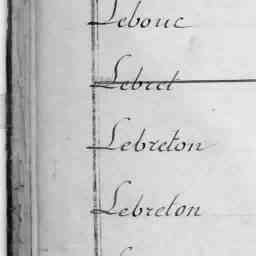 Lebouc
Lebret
Lebreton
Lebreton